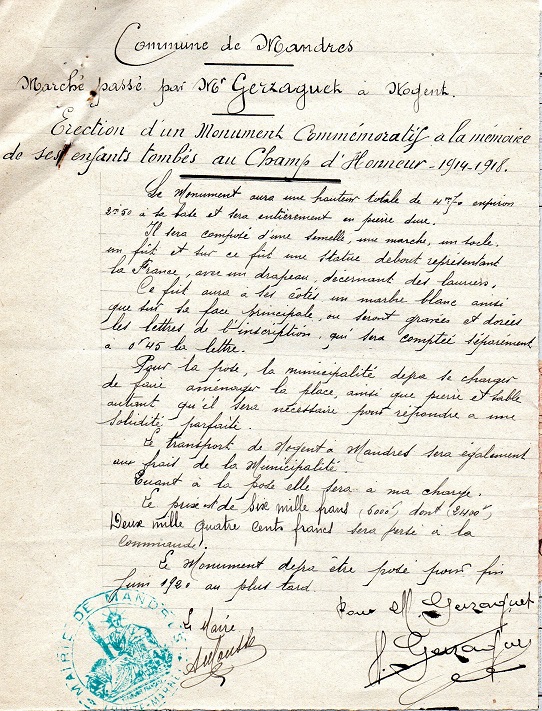 Commune de Mandres
Marché passé par Mr Gerzaguet à Nogent.
Erection d'un Monument Commémoratif a la mémoire
de ses enfants tombés au Champ d'Honneur - 1914-1918.
Le Monument aura une hauteur totale de 4m70 environ
2m50 à sa base et sera entièrement en pierre dure.
Il sera composé d'une semelle, une marche, un socle,
un fût et sur ce fût une statue debout représentant
la France, avec un drapeau, décernant des lauriers.
Ce fût aura à ses côtés un marbre blanc ainsi
que sur sa face principale, ou seront gravées et dorées
les lettres de l'inscription, qui sera comptée séparement
à 0f45 la lettre.
Pour la pose, la municipalité devra se charger
de faire aménager la place, ainsi que pierre et sable
autant qu'il sera nécessaire pour répondre a une
solidité parfaite.
Le transport de Nogent a Mandres sera également
aux frais de la Municipalité.
Quant à la pose elle sera à ma charge.
Le prix est de Six mille francs (6000f) dont (2400f)
Deux mille quatre cents francs sera versé à la
commande.
Le Monument devra être posé pour fin
Juin 1921 au plus tard.
Pour M. Gerzaguet
Le Maire
H. Gerzaguet
MAIRIE DE MANDRES